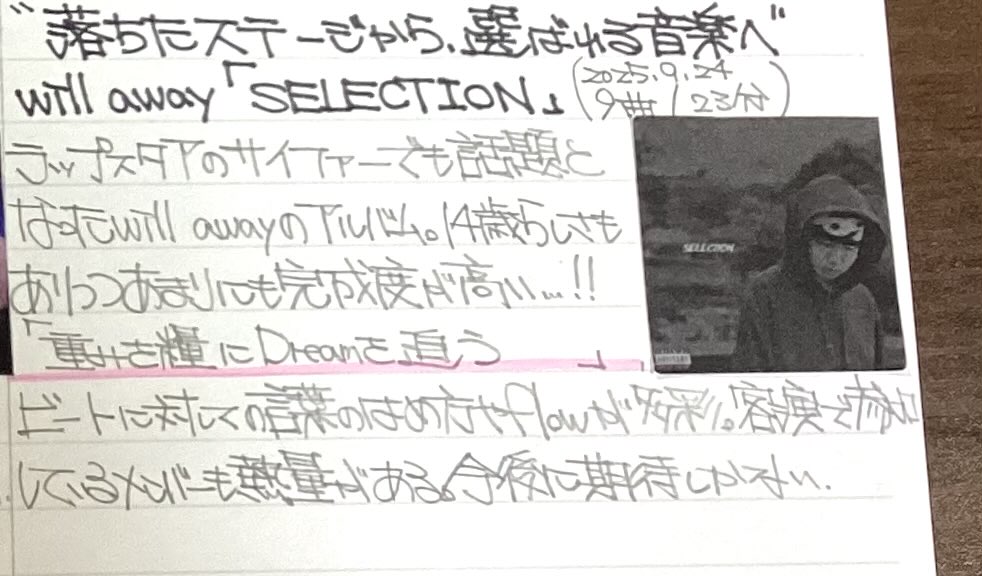 "落ちたステージから、選ばれる音楽へ"
will away「SELECTION」(2025.9.24 9曲/23分)
ラップスタアのサイファーでも話題と
なったwill awayのアルバム。14歳らしさも
ありつつあまりにも完成度が高い…!!
「重みを糧にDreamを追う 」
ビートに対しての言葉のはめ方やflowが多彩。客演で参加
しているメンバーも熱量がある。今後に期待しかない.
SELECTION